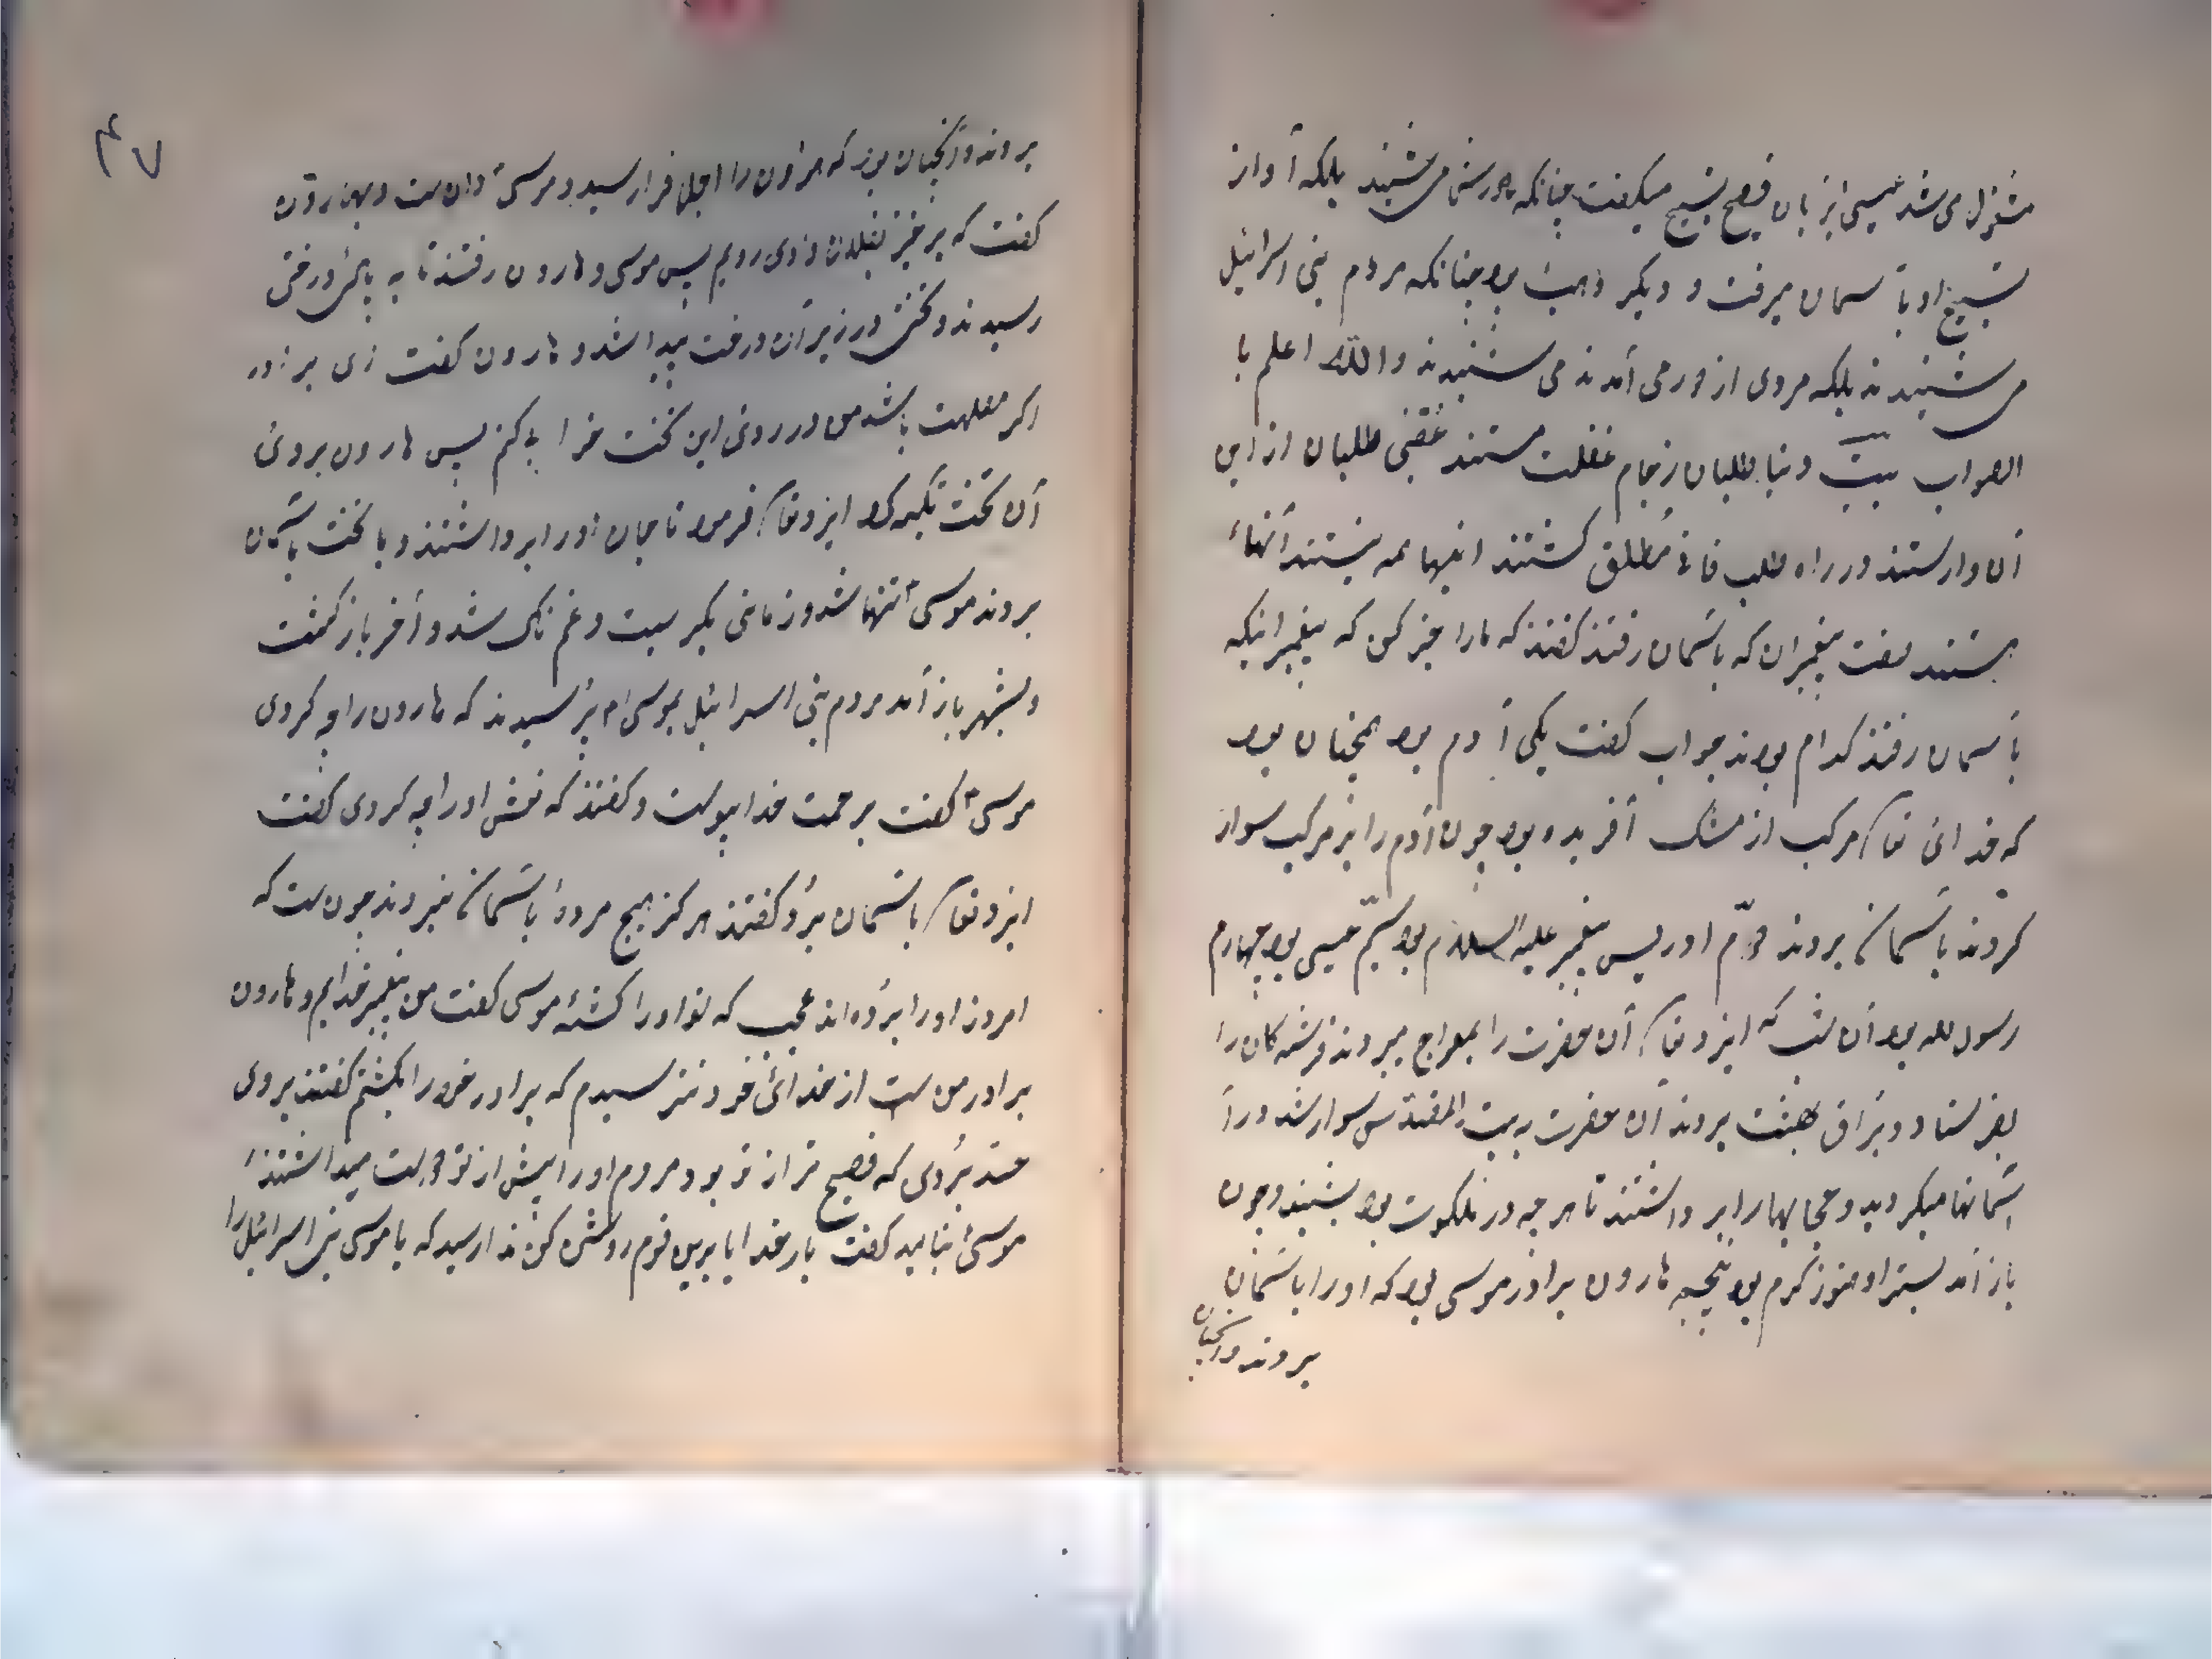 مشغول می شد عیسی بزبان فصیح تسبیح میکفت چنانکه هر سنی می شنید بلکه آواز
تسبیح او بآسمان میرفت و دیکر بود چنانکه مردم بنی اسرائیل
می شنیدند بلکه مردی از دور می آمدند می شنیدند والله اعلم با
الصواب بیت دنیا طلبان ز جام غفلت مستند عقبی طلبان از این
آن وارستند در راه طلب فانی مطلق کشتند اینها همه نیستند آنهاء
هستند صفت پیغمبران که بآسمان رفتند کفتند که مارا خبر کن که پیغمبر اینکه
بآسمان رفتند کدام بودند جواب کفت یکی آدم بود همچنان بود
که خدائی تعا مرکب از مشک آفریده بود چون آدم را بر مرکب سوار
کردند بآسمان بردند دوم ادریس پیغمبر علیه السلام بود سیم عیسی بود چهارم
رسول الله بود آن شب که ایزد تعا آن حضرت را بمعراج میبردند فرشتکان را
بفرستاد و براق بهشت بردند آن حضرت به بیت المقدس سوار شد در آ
آسمانها میکردید و حجابها را برداشتند تا هر چه در ملکوت بود بشنید و چون
باز آمد بستر او هنوز کرم بود پنجم هارون برادر موسی بود که او را بآسمان
بردند و آنچنان
۴۷
بردند و آنچنان بود که هارون را اجل فرا رسید و موسی دانست و بهارون
کفت که برخیز وادی رویم پس موسی و هارون رفتند تا به پائی درختی
رسیدند و تختی در زیر آن درخت پیدا شد و هارون کفت ای برادر
اکر مصلحت باشد من در روی این تخت خوابکنم پس هارون بروئ
آن تخت تکیه کرد ایزد تعا فرمود تا جان اورا برداشتند و با تخت بآسمان
بردند موسی تنها شد و زمانی بکریست و غمناک شد و آخر باز کشت
و بشهر باز آمد مردم بنی اسرائیل بموسی پرسیدند که هارون را چه کردی
موسی کفت برحمت خدا پیوست و کفتند که نعش اورا چه کردی کفت
ایزد تعا بآسمان برد کفتند هرکز هیچ مرده بآسمان نبردند چونست که
امروز اورا برده اند عجب که تو اورا کشته موسی کفت من پیغمبر خدایم و هارون
برادر منست از خدائی خود نترسیدم که برادر خود را بکشتم کفتند بروی
حسد بردی که فصیح تر از تو بود و مردم اورا بیش از تو دوست میداشتند
موسی بنالید کفت بار خدایا برین قوم روشن کن ندا رسید که یا موسی بنی اسرائیل را